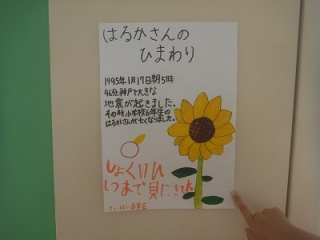 はるかさんの
ひまわり
1995年1月17日朝5時
46分神戸で大きな
地震が起きました。
その時小学校6年生の
はるかさんが亡くなりました。
しょく11日
いつまで見にきてね